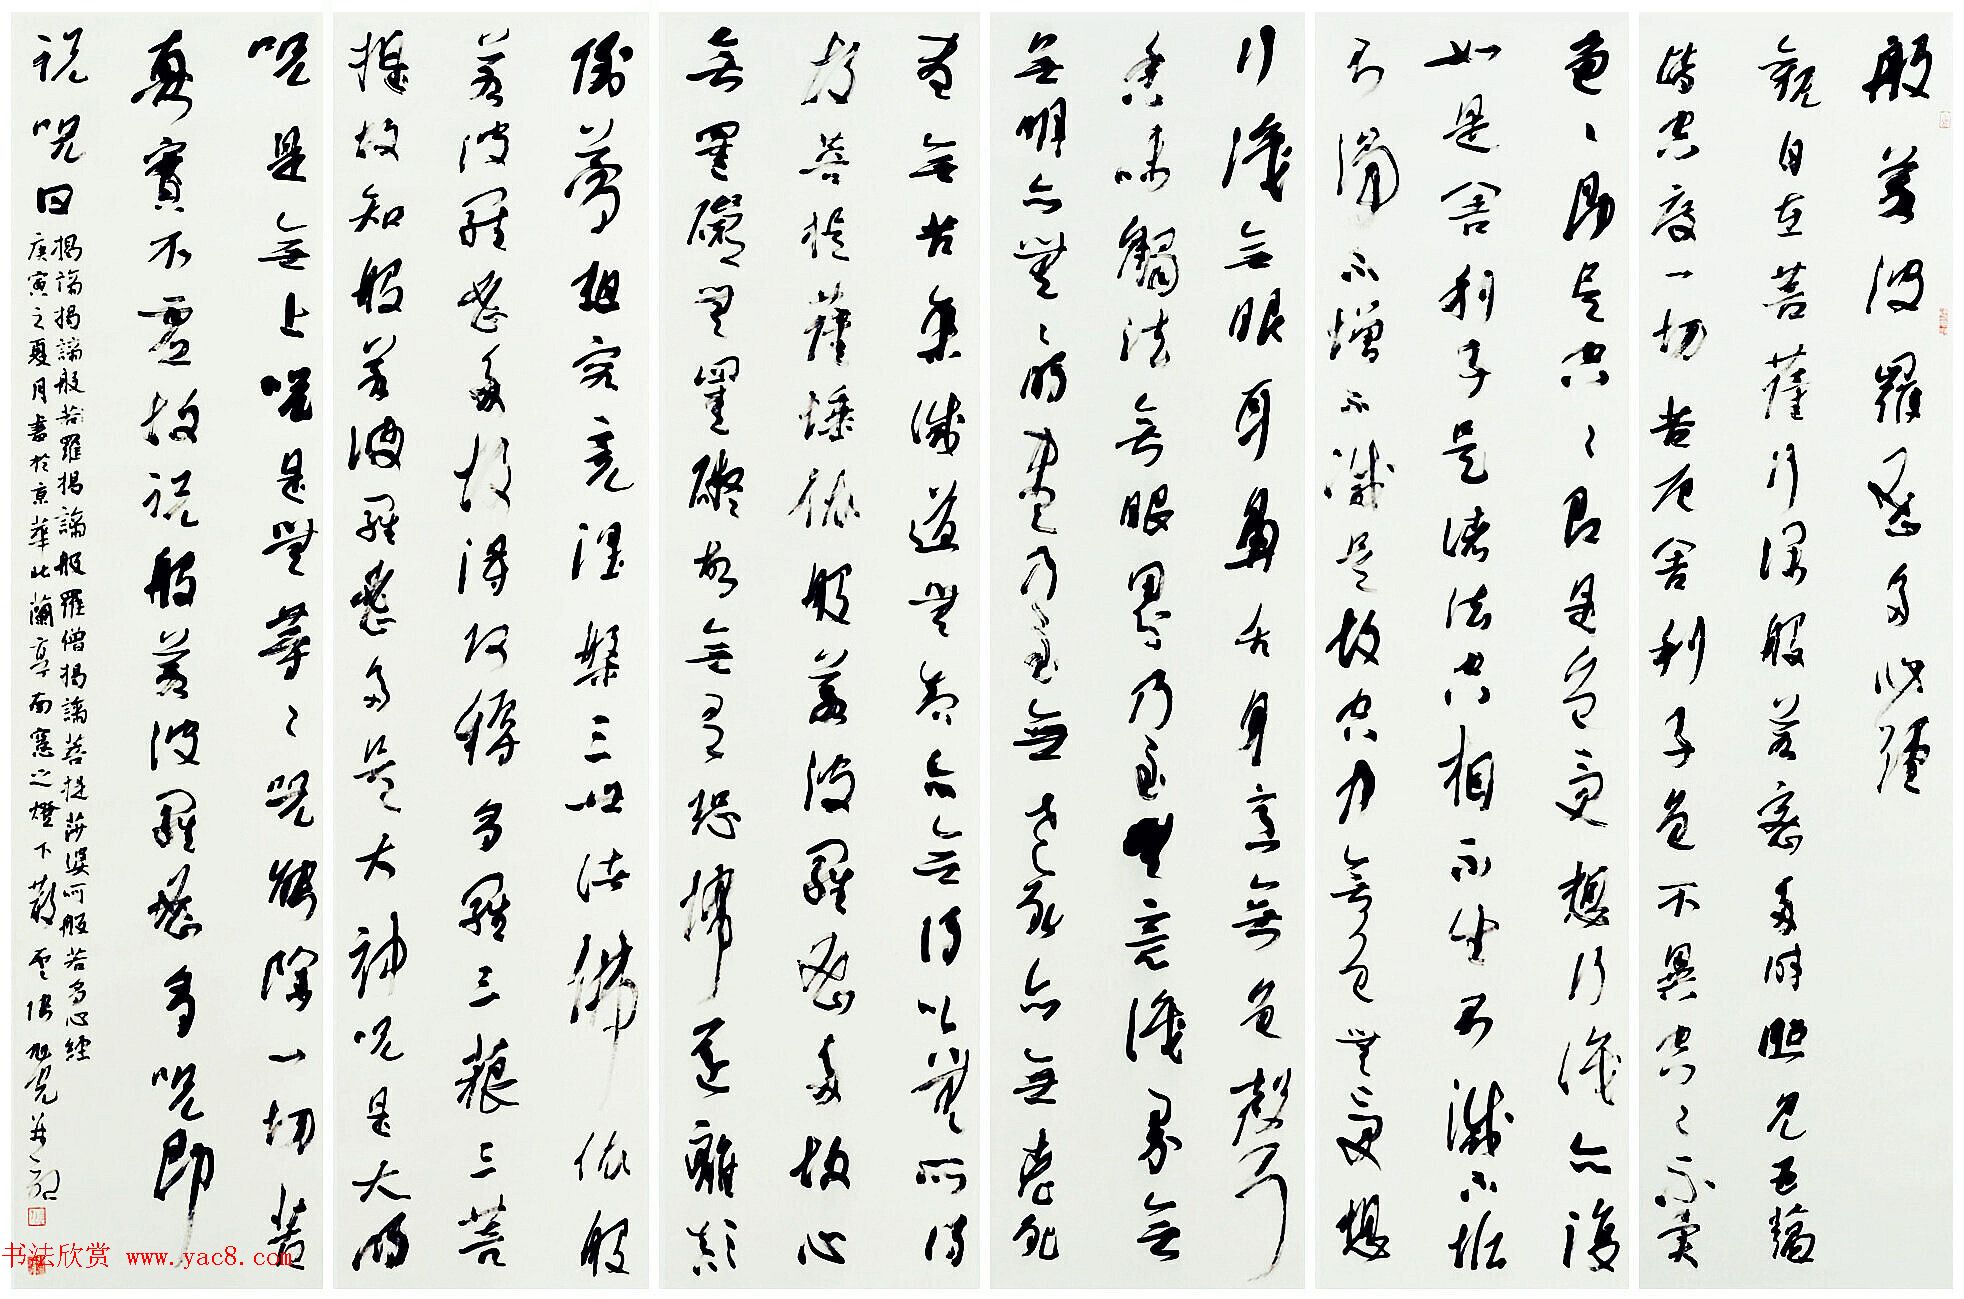 般若波羅密多心經
觀自在菩薩行深般若密多時照見五蘊
皆空度一切苦厄舍利子色不異空空〻不異
色〻即是空〻即是色受想行識亦復
如是舍利子是諸法空相不生不滅不垢
不淨不增不減是故空中無色無受想
行識無眼耳鼻舌身意無色聲
香味觸法無眼界乃至無意識界無
無明亦無〻明盡乃至無老死亦無老死
盡無苦集滅道無智亦無得以無所得
故菩提薩埵依般若波羅密多故心
無罣礙無罣礙故無有恐怖遠離顛
倒夢想究竟涅槃三世諸佛依般
若波羅密多故得阿耨多羅三藐三菩
提故知般若波羅密多是大神呪是大明
呪是無上呪是無等〻呪能除一切苦
真實不虛故說般若波羅密多呪即
說呪曰
揭諦揭諦般若羅揭諦般羅僧揭諦菩提莎婆呵般若多心經
庚寅之夏月書於京華北蘭亭南窗之燈下
書法欣赏 www.yac8.com